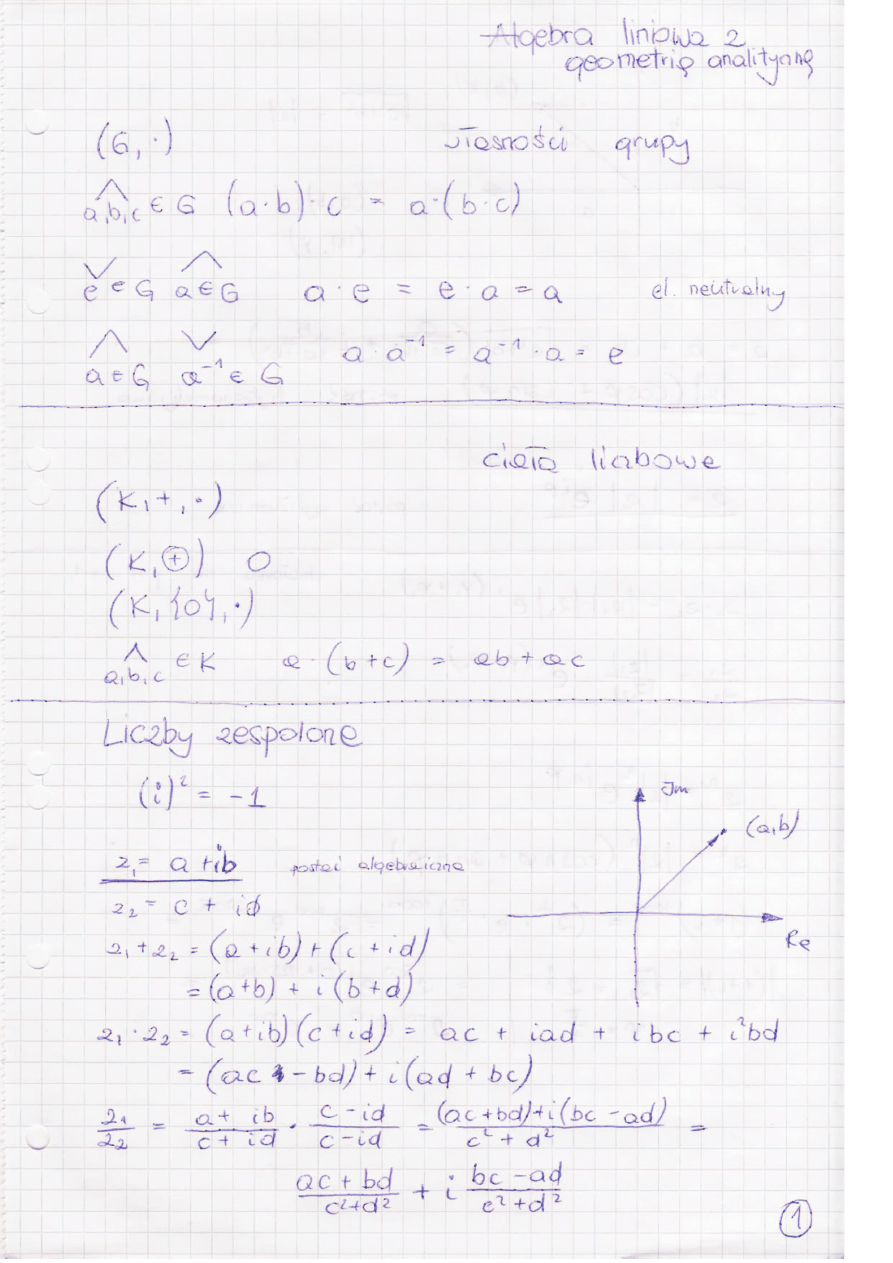 Algebra liniowa z
geometrią analityczną
(G, ·) własności grupy
⋀ a,b,c ∈ G (a·b)·c = a·(b·c)
⋁ e ∈ G ⋀ a ∈ G a·e = e·a = a el. neutralny
⋀ a ∈ G ⋁ a⁻¹ ∈ G a·a⁻¹ = a⁻¹·a = e
ciała liczbowe
(K, +, ·)
(K, ⊕) 0
(K, {0}, ·)
⋀ a,b,c ∈ K a·(b+c) = ab + ac
Liczby zespolone
(i)² = -1
Im
(a,b)
z₁ = a + ib postać algebraiczna
z₂ = c + id
Re
z₁ + z₂ = (a + ib) + (c + id)
= (a+b) + i(b+d)
z₁ · z₂ = (a+ib)(c+id) = ac + iad + ibc + i²bd
= (ac - bd) + i(ad + bc)
z₁/z₂ = (a + ib)/(c + id) · (c - id)/(c - id) = ((ac+bd)+i(bc-ad))/(c² + d²) =
(ac + bd)/(c²+d²) + i (bc - ad)/(c²+d²)
1